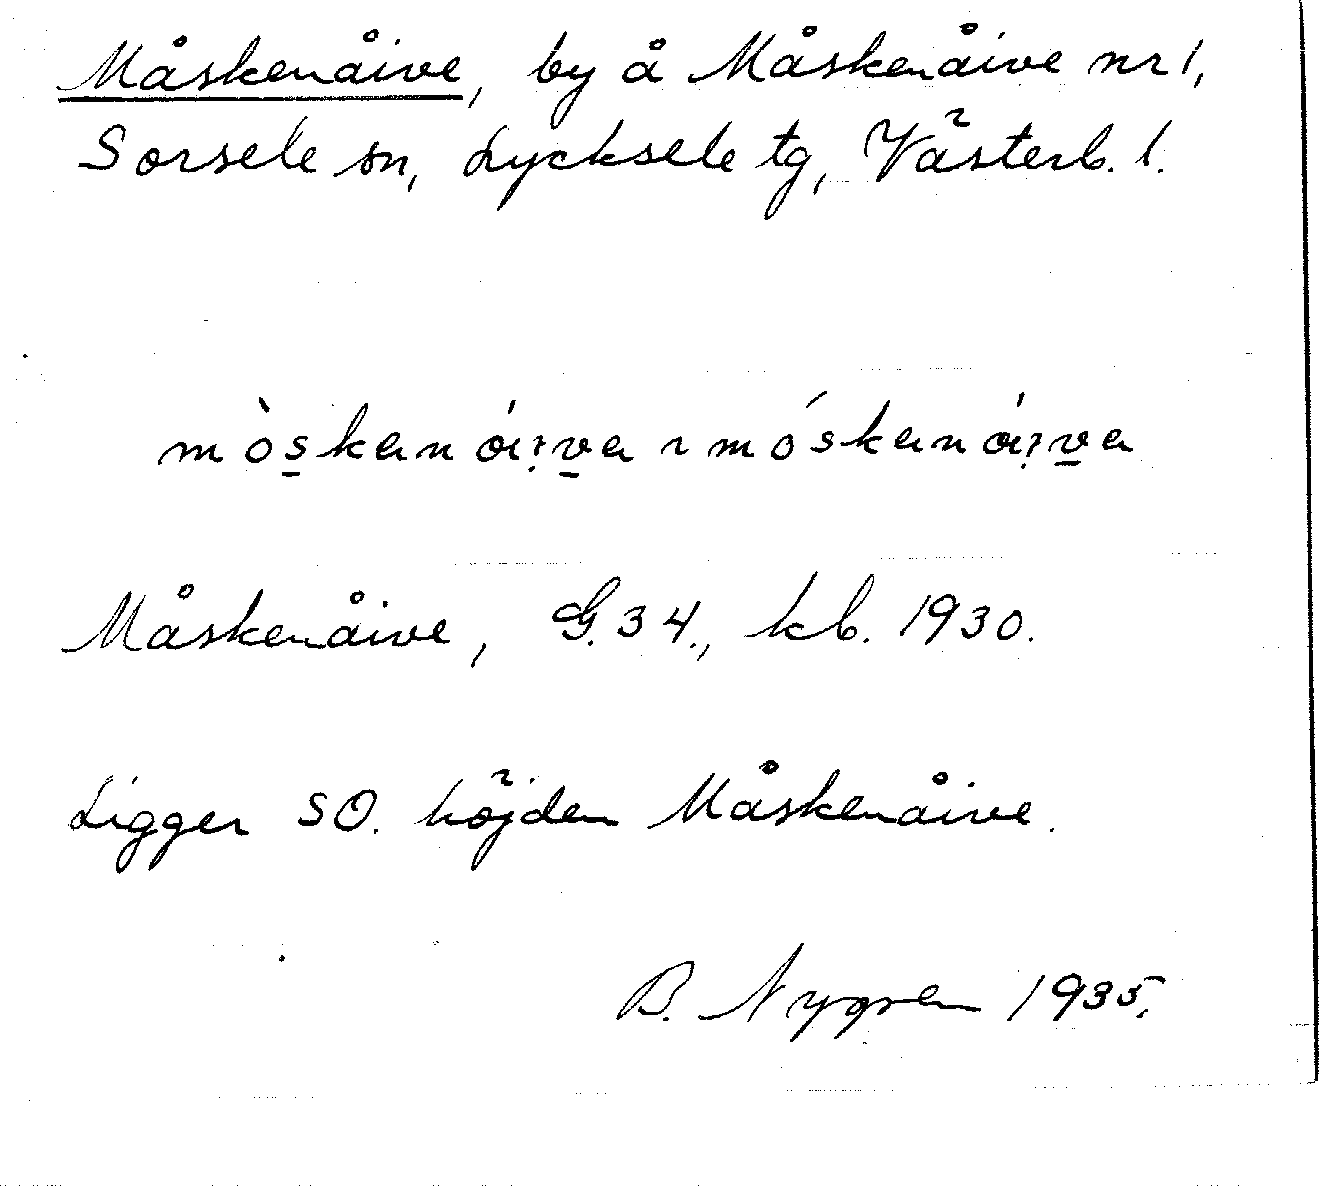 Måskenåive, by å Måskenåive nr 1,
Sorsele sn, Lycksele tg, Västerb. l.
mò̱skenái̯v̱a ~ móskenái̯v̱a
Måskenåive, G. 34., kb. 1930.
Ligger SO. höjden Måskenåive.
B. Nygren 1935.